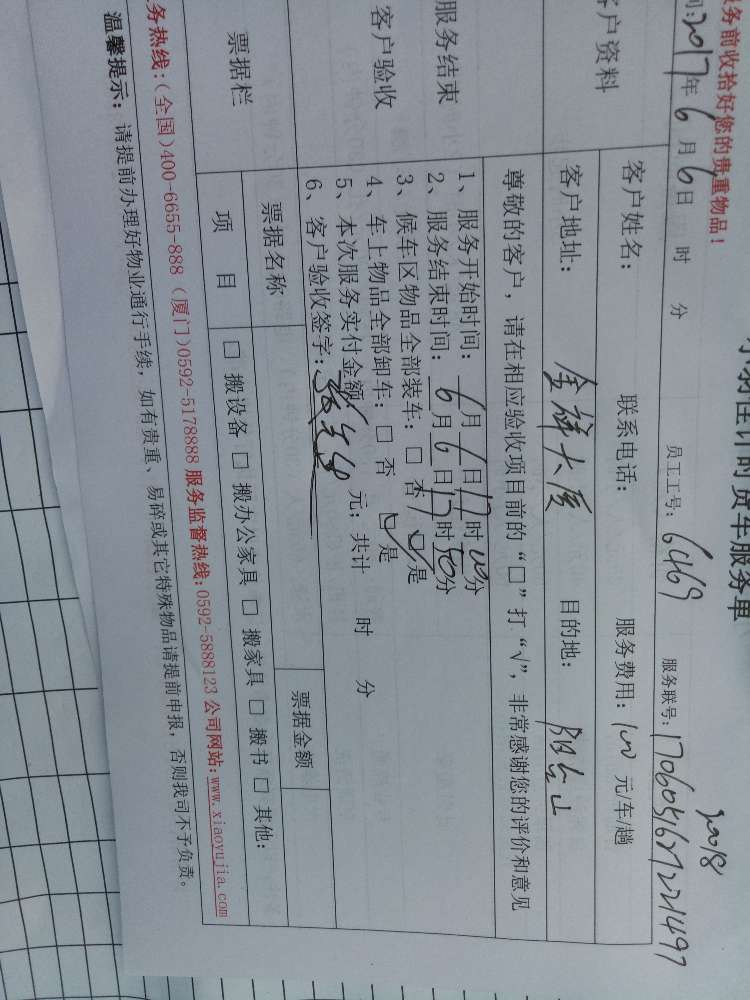 服务前收拾好您的贵重物品!
间:2017年6月6日 时 分 员工工号: 6469 服务联号: 1706051627221497
2008
客户资料
客户姓名: 联系电话: 服务费用: 100 元/车/趟
客户地址: 金祥大厦 目的地: 阳台山
尊敬的客户,请在相应验收项目前的“□”打“√”,非常感谢您的评价和意见
服务结束
客户验收
1、服务开始时间: 6月6日17时10分
2、服务结束时间: 6月6日17时50分
3、候车区物品全部装车: □ 否 ☑ 是
4、车上物品全部卸车: □ 否 ☑ 是
5、本次服务实付金额 元; 共计 时 分
6、客户验收签字:
票据栏
票据名称 票据金额
项 目 □ 搬设备 □ 搬办公家具 □ 搬家具 □ 搬书 □ 其他:
务热线:(全国)400-6655-888 (厦门)0592-5178888 服务监督热线:0592-5888123 公司网站:www.xiaoyujia.com
温馨提示: 请提前办理好物业通行手续,如有贵重、易碎或其它特殊物品请提前申报,否则我司不予负责。